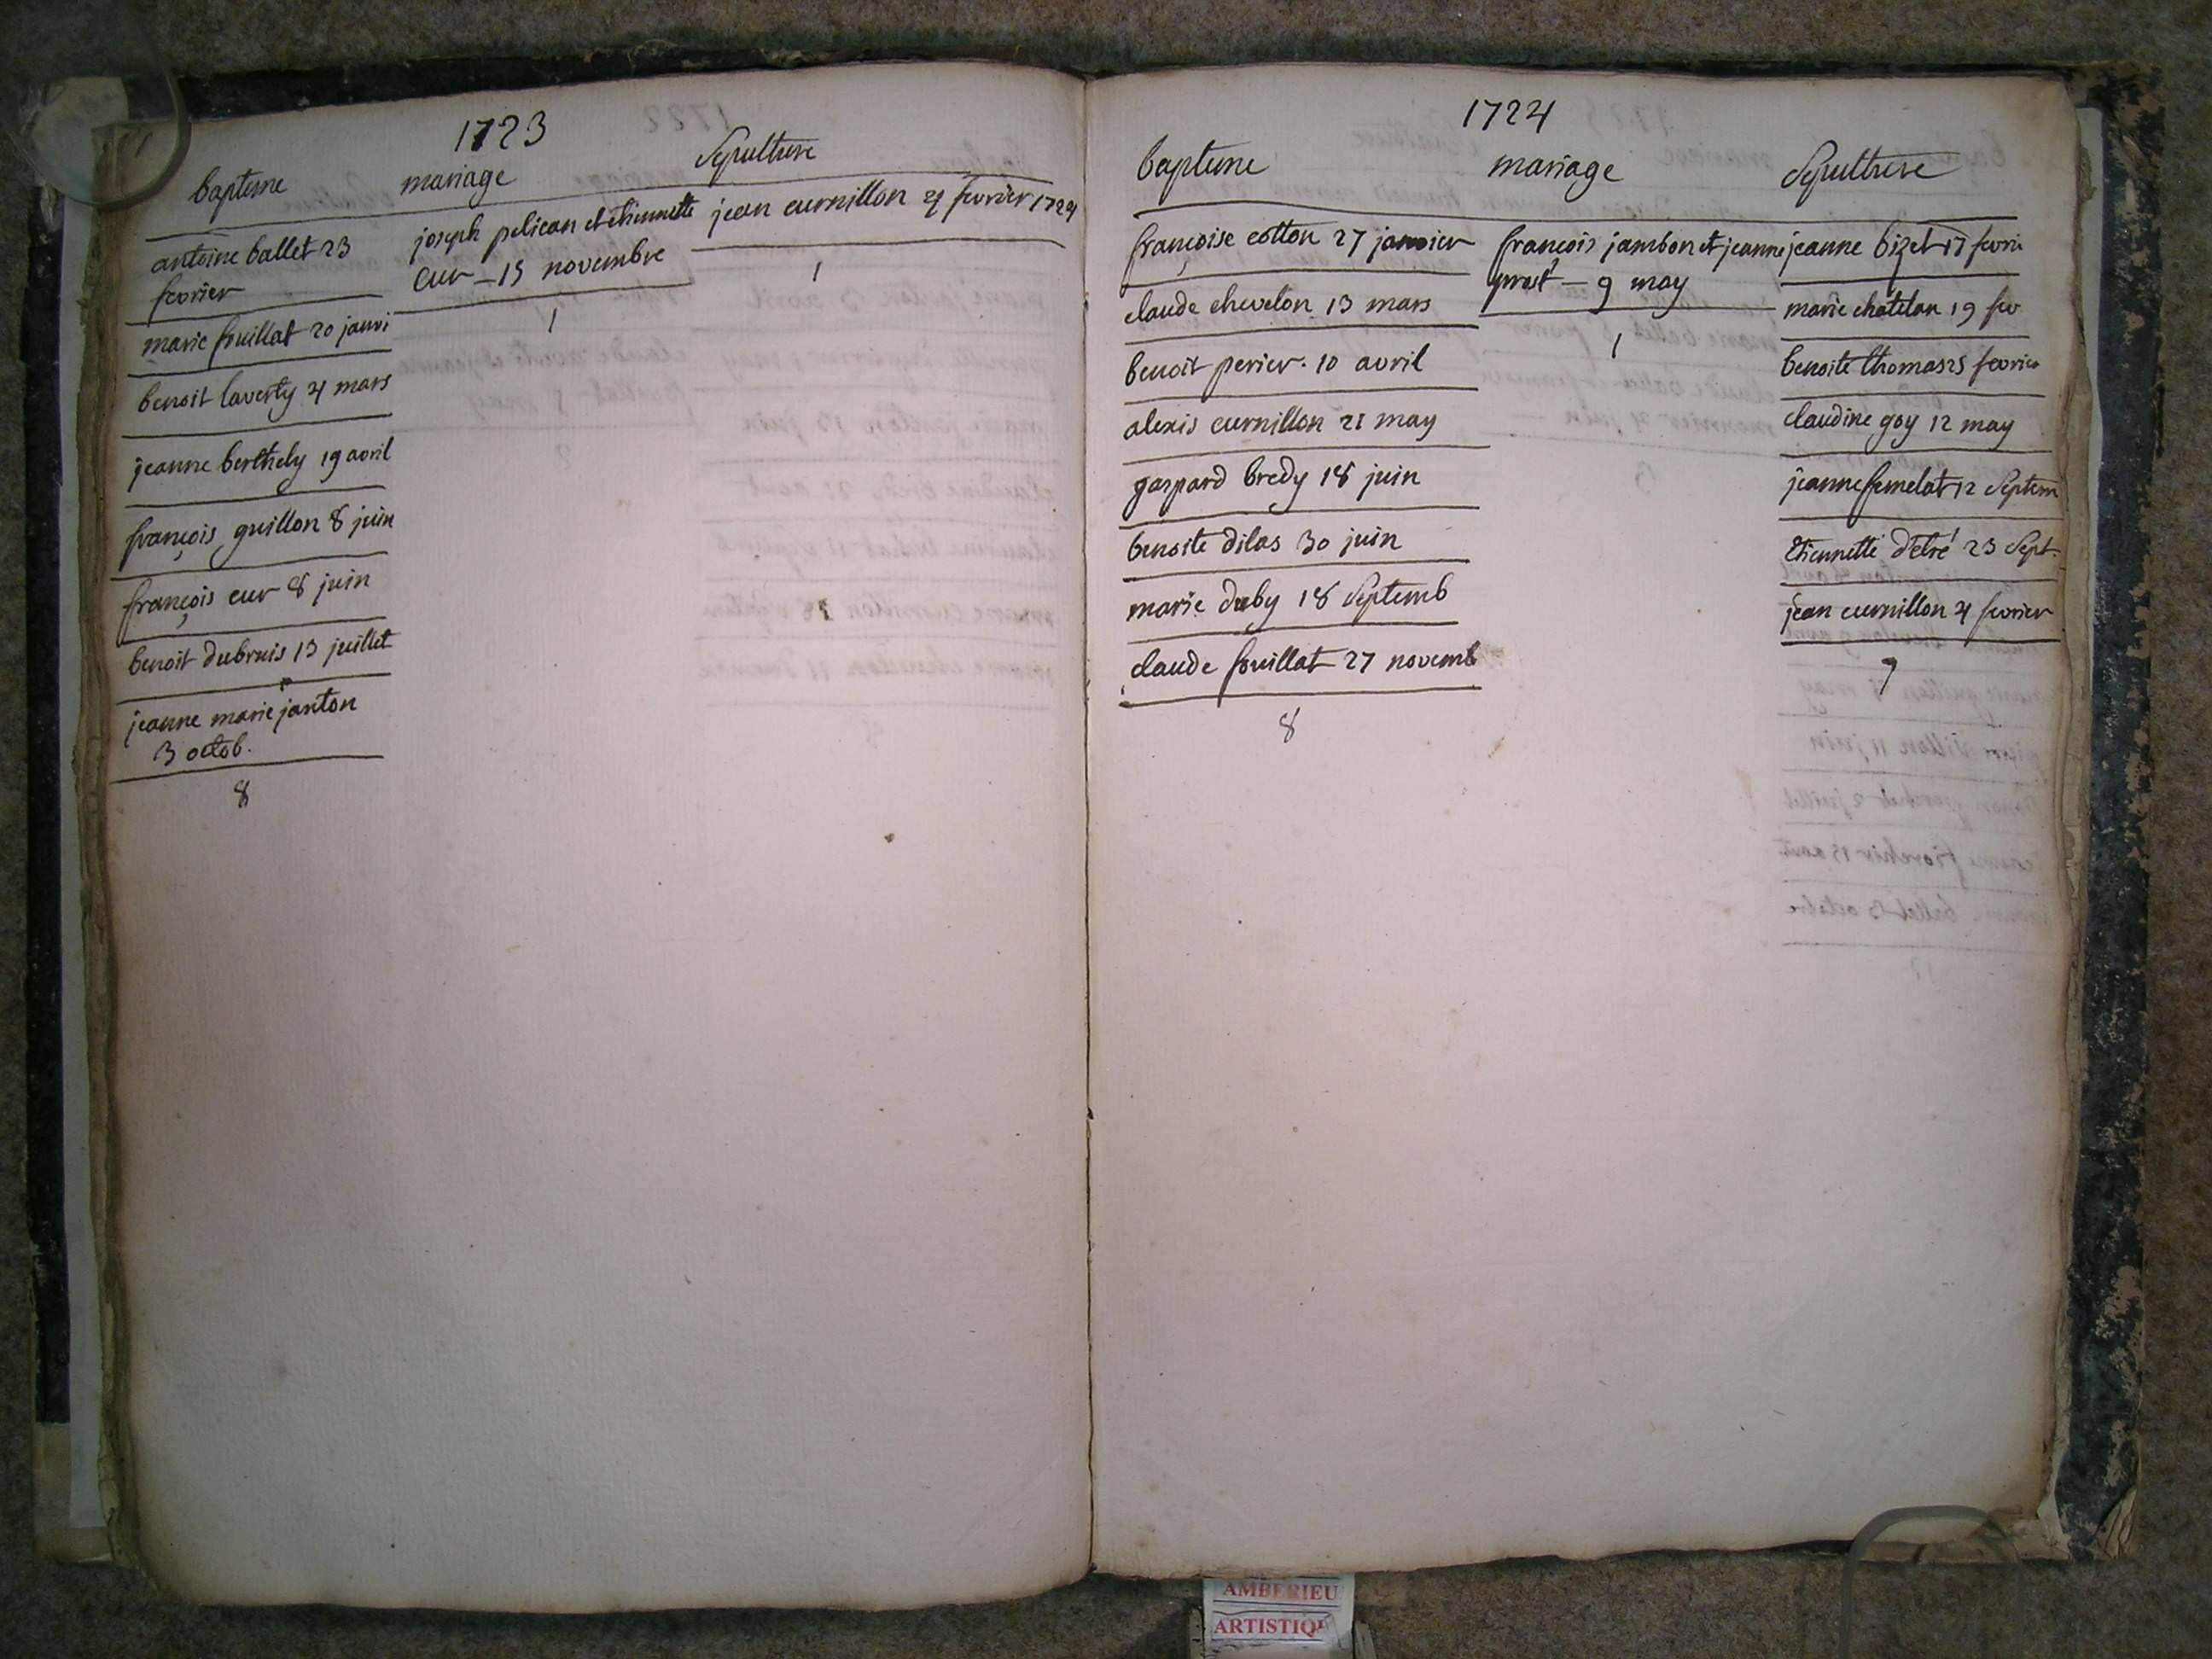 1723
bapteme
mariage
Sepulture
antoine ballet 23
fevrier
marie fouillat 20 janvi
benoit laverty 4 mars
jeanne berthely 19 avril
françois guillon 8 juin
françois cur 8 juin
benoit dubruis 13 juillet
jeanne marie janton
3 octob.
8
joseph pelican et etiennette
cur - 15 novembre
1
jean curnillon 4 fevrier 1724
1
1724
bapteme
mariage
Sepulture
françoise cotton 27 janvier
claude chevelon 13 mars
benoit perier. 10 avril
alexis curnillon 21 may
gaspard bredy 18 juin
benoite dilas 30 juin
marie duby 18 Septemb
claude fouillat 27 novemb
8
françois jambon et jeanne
prost - 9 may
1
jeanne bizet 17 fevri
marie chatelan 19 fev
benoite thomas 25 fevrier
claudine goy 12 may
jeanne femelat 12 Septem
Etiennette d'etré 23 Sept.
jean curnillon 4 fevrier
7
AMBERIEU